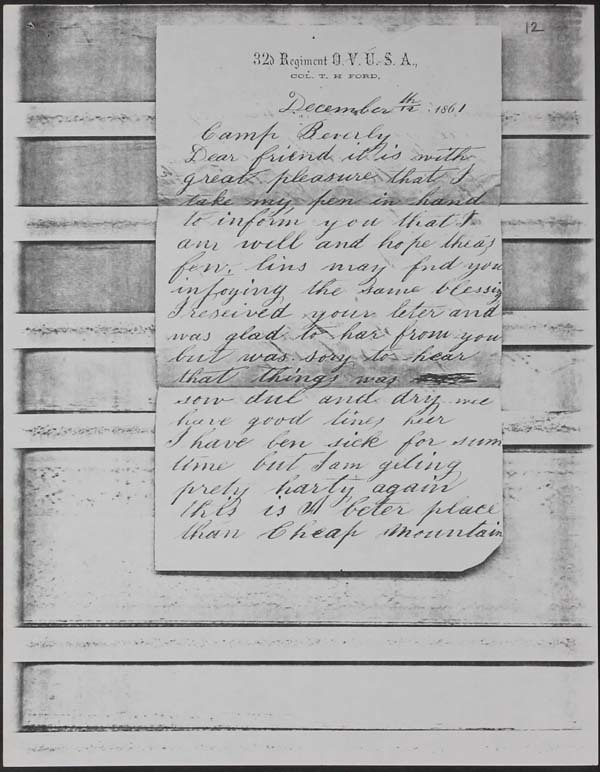 12
32d Regiment O. V. U. S. A.,
COL. T. H FORD,
December 12th 1861
Camp Beverly
Dear friend it is with
great pleasure that I
take my pen in hand
to inform you that I
am well and hope theas
few, lins may find you
injoying the same blessing
I reseived your leter and
was glad to har from you
but was sory to hear
that things was
sow dul and dry wee
have good times heir
I have ben sick for sum
time but I am giting
prety harty again
this is A beter place
than Cheap Mountain